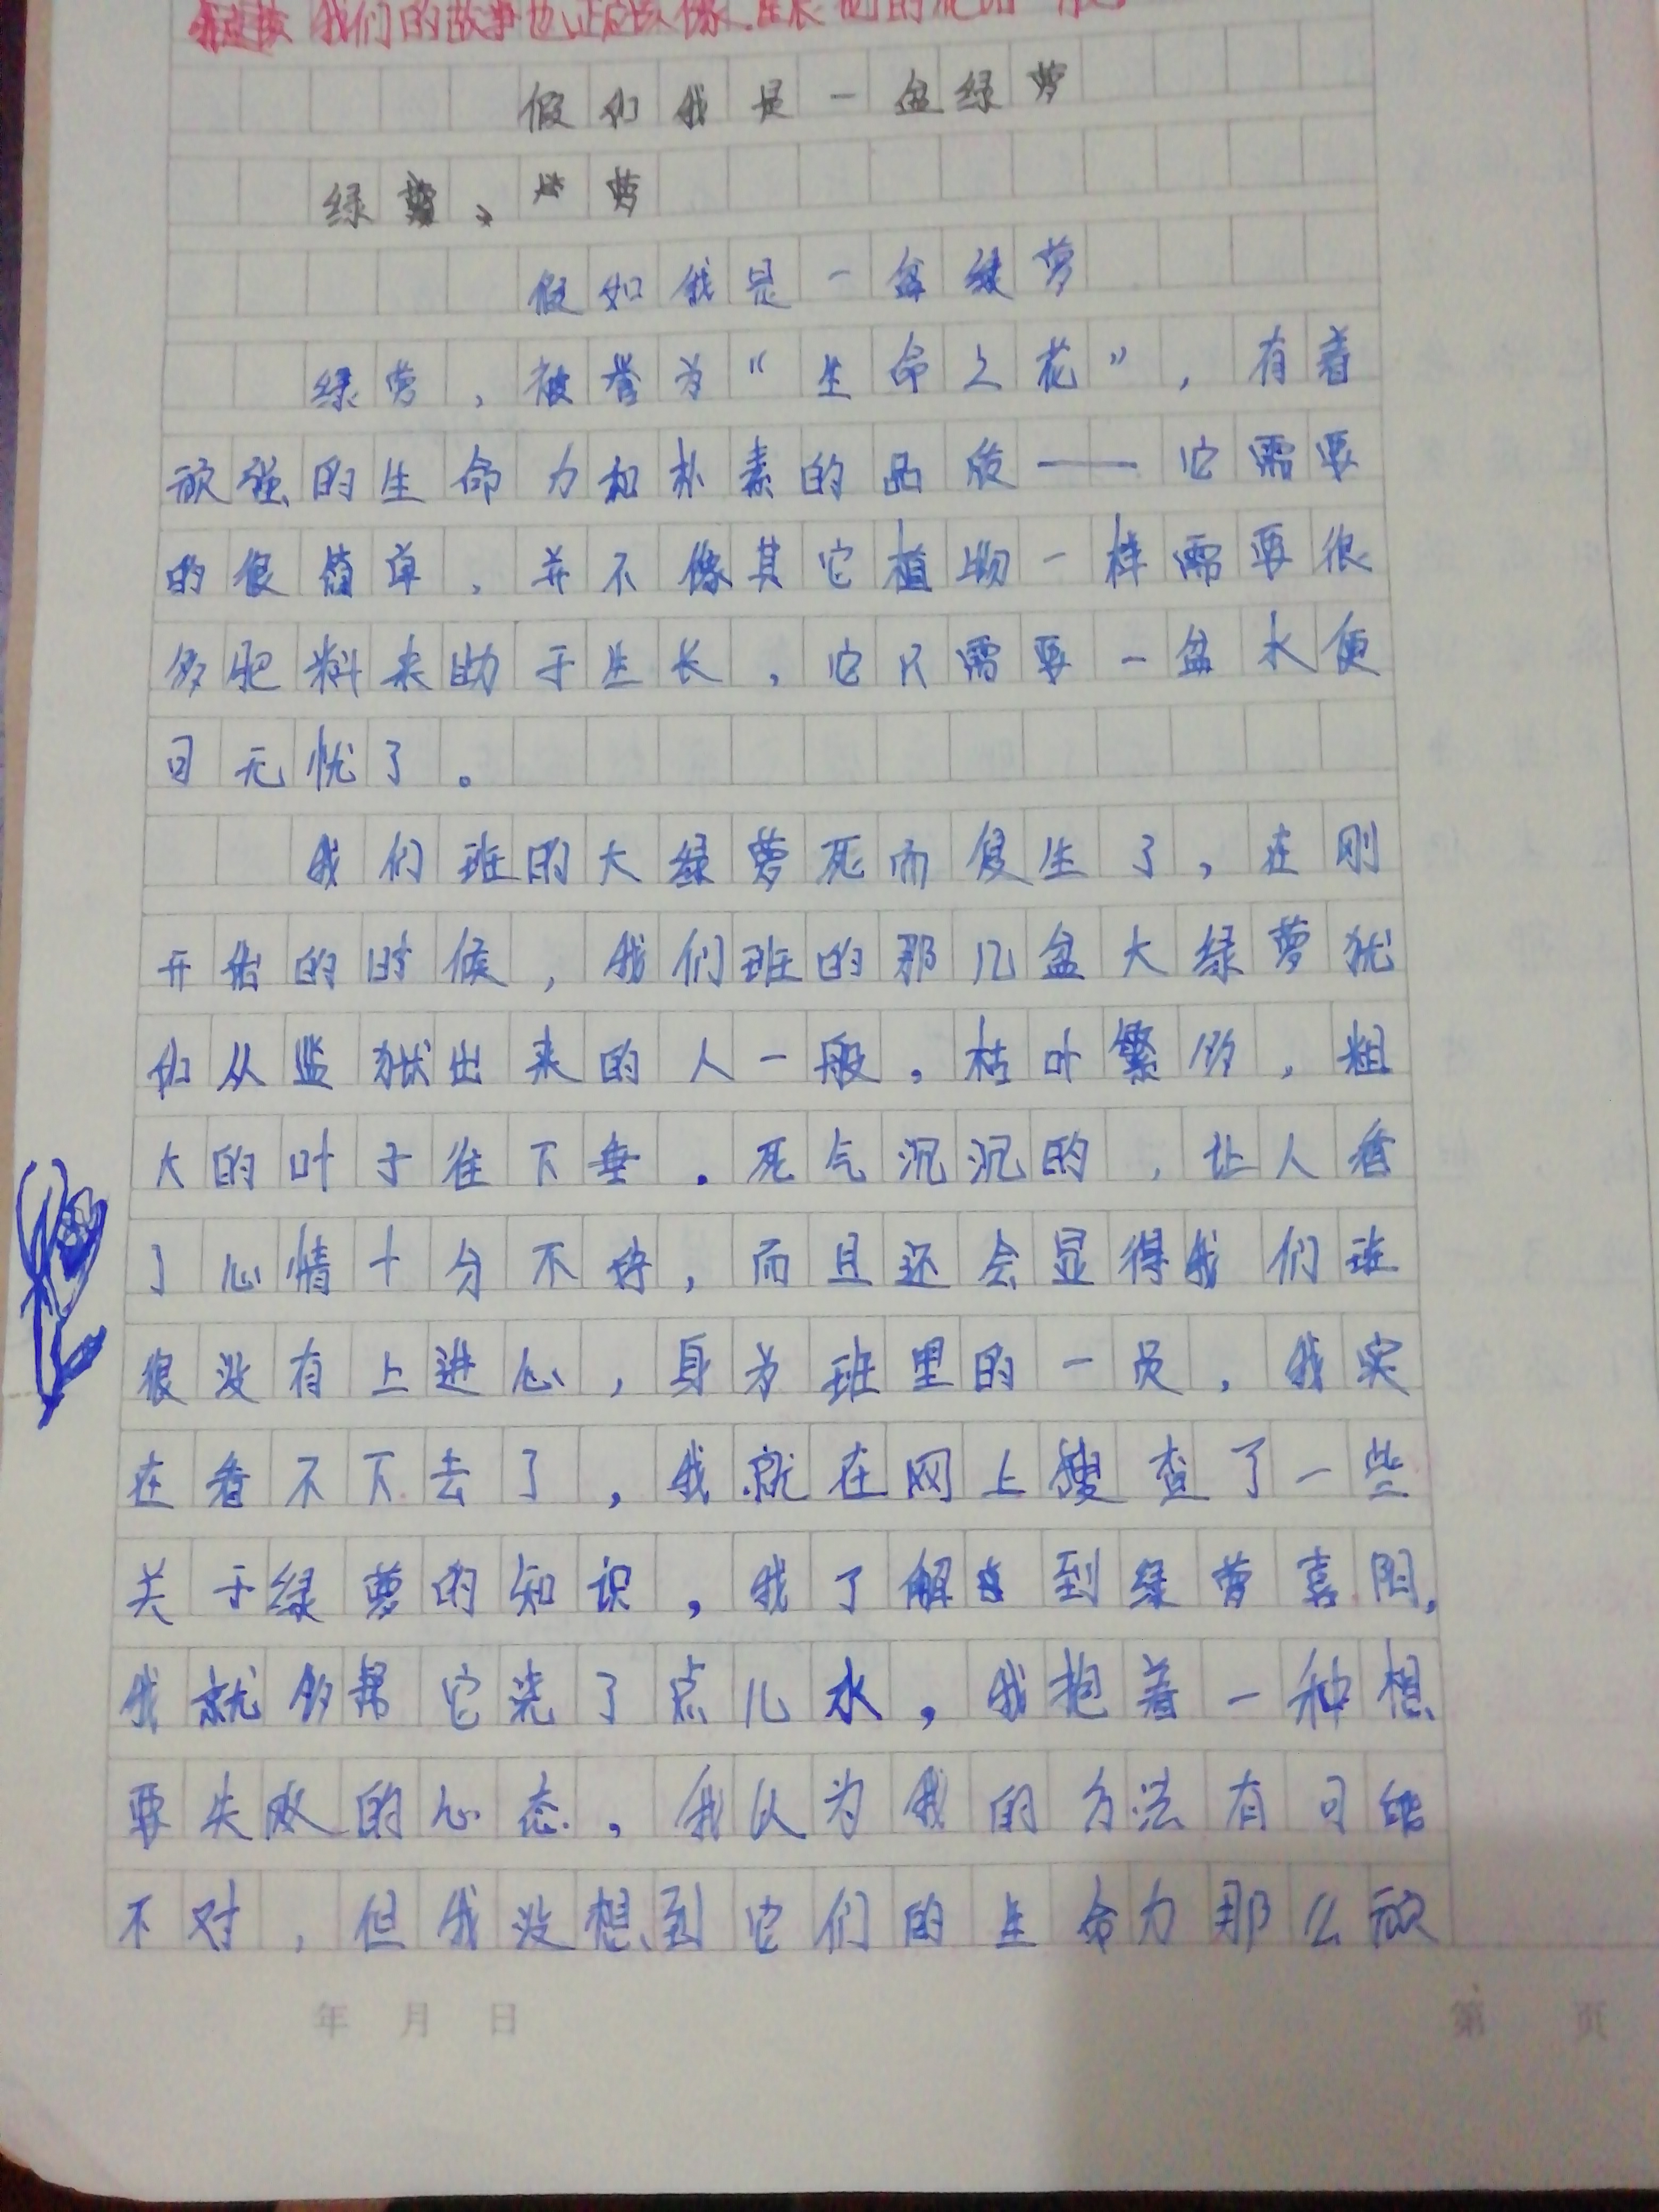 我们的故事也正应该像
假如我是一盆绿萝
绿萝、萝
假如我是一盆绿萝
绿萝，被誉为“生命之花”，有着
顽强的生命力和朴素的品质——它需要
的很简单，并不像其它植物一样需要很
多肥料来助于生长，它只需要一盆水便
可无忧了。
我们班的大绿萝死而复生了，在刚
开始的时候，我们班的那几盆大绿萝犹
如从监狱出来的人一般，枯叶繁多，粗
大的叶子往下垂．死气沉沉的，让人看
了心情十分不好，而且还会显得我们班
很没有上进心，身为班里的一员，我实
在看不下去了，我就在网上搜查了一些
关于绿萝的知识，我了解到绿萝喜阳，
我就多帮它浇了点儿水，我抱着一种想
要失败的心态，我认为我的方法有可能
不对，但我没想到它们的生命力那么顽
年 月 日
第 页